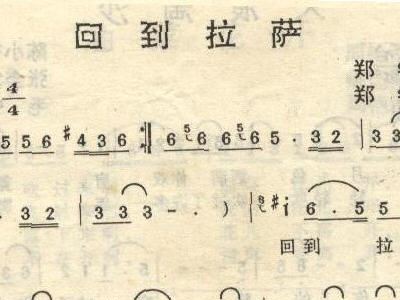 回到拉萨
郑
4/4 郑
5 | 5 6 #4 3 6 :‖ 6 6 6 6 5 . 3 2 | 3 3
. 3 2 | 3 3 3 - . ) | #i 6 . 5 5
回到 拉